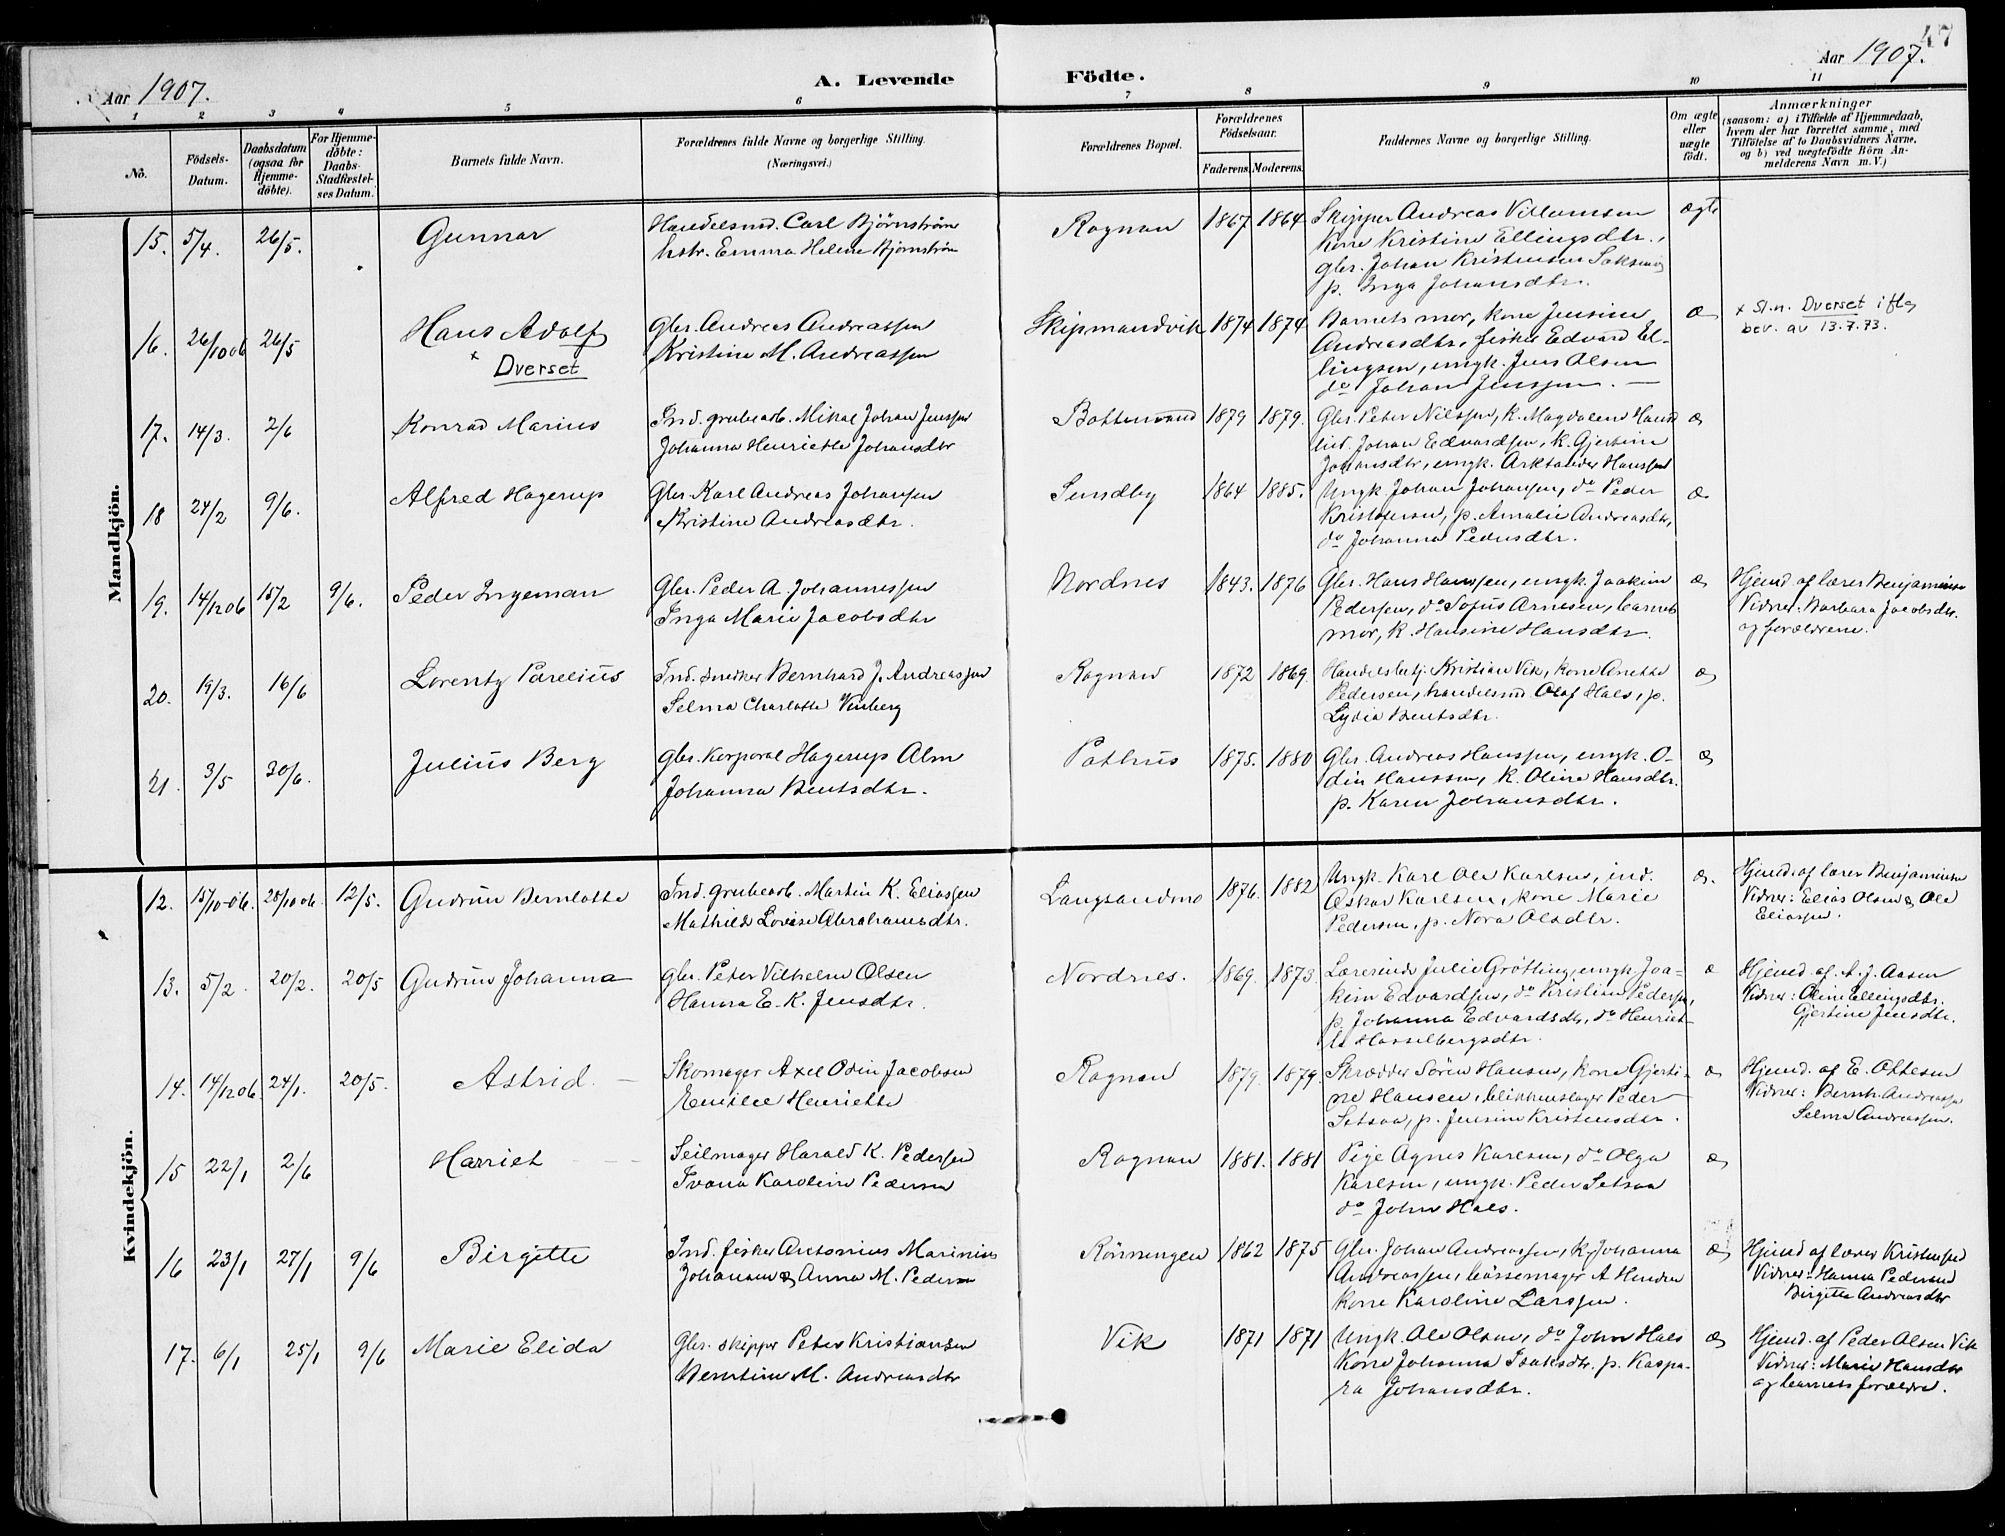 47
Aar 1907.
A. Levende Födte.
Aar 1907.
1 2 3 4 5 6 7 8 9 10 11
No.
Födsels-Datum.
Daabsdatum (ogsaa for Hjemmedöbte).
For Hjemmedöbte: Daabs-Stadfæstelses Datum.
Barnets fulde Navn.
Forældrenes fulde Navne og borgerlige Stilling. (Næringsvei.)
Forældrenes Bopæl.
Forældrenes Födselsaar.
Faderens. Moderens.
Faddernes Navne og borgerlige Stilling.
Om ægte eller uægte födt.
Anmærkninger
(saasom: a) i Tilfælde af Hjemmedaab,
hvem der har forrettet samme, med
Tilföielse af to Daabsvidners Navne,
og b) ved uægtefödte Börn An-
melderens Navn m. V.)
Mandkjön.
15. 5/4. 26/5. Gunnar
Handelsmd. Carl Bjørnstrøm
hstr. Emma Helene Bjørnstrøm
Rognan 1867 1864
Skipper Andreas Villumsen
Kone Kristine Ellingsdtr.,
gbr. Johan Kristensen Saksenvig
p. Inga Johansdtr.
ægte
16. 26/10 06 26/5 Hans Adolf
x Dverset
Gbr. Andreas Andreassen
Kristine M. Andreassen
Skipmandvik 1874 1874
Barnets mor, kone Jensine
Andreasdtr. fisker Edvard El-
lingsen, ungk. Jens Olsen
do Johan Jenssen. —
æ
x Sl.n. Dverset ifлg
bev. av 13.7.73.
17. 14/3. 2/6 Konrad Marius
Ind. grubearb. Mikal Johan Jenssen
Johanna Henriette Johansdtr
Bottenvand 1879 1879.
Gbr. Peter Nilssen, K. Magdalena Hansd
ind. Johan Edvardsen, K. Gjertine
Johansdtr, ungk. Arktander Hanssen
æ
18 24/2 9/6. Alfred Hagerup
Gbr. Karl Andreas Johansen
Kristine Andreasdtr.
Sundby 1864 1885.
Ungk. Johan Johansen, do Peder
Kristofersen, p. Amalie Andreasdtr,
do Johanna Pedersdtr.
æ
19. 14/12 06 15/2 9/6. Peder Ingeman
Gbr. Peder A. Johannessen
Inga Marie Jacobsdtr
Nordnes 1843. 1876
Gbr. Hans Hanssen, ungk. Joakim
Pedersen, do Sofus Arnesen, barnets
mor, K. Hansine Hansdtr.
æ
Hjemd. af lærer Benjaminsen
Vidner: Barbara Jacobsdtr.
og forældrene.
20. 19/3. 16/6 Lorentz Parelius
Ind. snedker Bernhard J. Andreassen
Selma Charlotte Vinberg
Rognan 1872 1869.
Handelsbetj. Kristian Vik, kone Anette
Pedersen, handelsmd. Olaf Hals, p.
Lydia Bentsdtr.
æ
21. 3/5 30/6. Julius Berg
Gbr. Korporal Hagerup Alm
Johanna Bentsdtr.
Pothus 1875. 1880
Gbr. Andreas Hanssen, ungk. O-
din Hanssen, K. Oline Hansdtr.
p. Karen Johansdtr.
æ
Kvindekjön.
12. 15/10-06. 28/10 06. 12/5. Gudrun Bernlotte
Ind. grubearb. Martin K. Eliassen
Mathilde Lovise Abrahamsdtr.
Langsandmo 1876. 1882
Ungk. Karl Ole Karlsen, ind.
Oskar Karlsen, kone Marie
Pedersen, p. Nora Olsdtr.
æ.
Hjemd. af lærer Benjaminsen
Vidner: Elias Olsen & Ole
Eliassen.
13. 5/2. 20/2. 20/5 Gudrun Johanna
gbr. Peter Vilhelm Olsen
Hanna E. K. Jensdtr.
Nordnes. 1869. 1873.
Lærerinde Julie Grøtting, ungk. Joa-
kim Edvardsen, do Kristian Pedersen,
p. Johanna Edvardsdtr, do Henriet-
te Hasselbergsdtr.
æ
Hjemd. af A. J. Aasen
Vidner: Oline Ellingsdtr.
Gjertine Jensdtr.
14. 14/12 06. 24/1. 20/5. Astrid. —
Skomager Axel Odin Jacobsen
Emilie Henriette
Rognan 1879. 1879.
Skrædder Sören Hansen, kone Gjerti-
ne Hansen, blikkenslager Peder
Setsaa, p. Jensine Kristensdtr.
æ
Hjemd. af E. Ottesen
Vidner: Bernh. Andreassen
Selma Andreassen.
15 22/1 2/6 Harriet
Seilmager Harald K. Pedersen
Ivana Karoline Pedersen
Rognan 1881. 1881
Pige Agnes Karlsen, do Olga
Karlsen, ungk. Peder Setsaa
do John Hals.
æ
16 23/1 27/1 9/6 Birgitte
Ind. fisker Antonius Marinius
Johansen & Anna M. Pedersen
Rönningen 1862 1875
Gbr. Johan Andreassen, K. Johanna
Andreassen, bössemager A Hendren
kone Karoline Larssen.
æ
Hjemd af lærer Kristensen
Vidner: Hanna Pedersen
Birgitte Andreasdtr
17. 6/1 25/1 9/6 Marie Elida
Gbr. skipper Peter Kristiansen
Berntine M. Andreasdtr
Vik 1871 1871
Ungk. Ole Olsen, do John Hals
Kone Johanna Isaksdtr. p. Kaspa-
ra Johansdtr.
æ
Hjemd. af Peder Olsen Vik
Vidner: Marie Hansdtr
og barnets forældre.